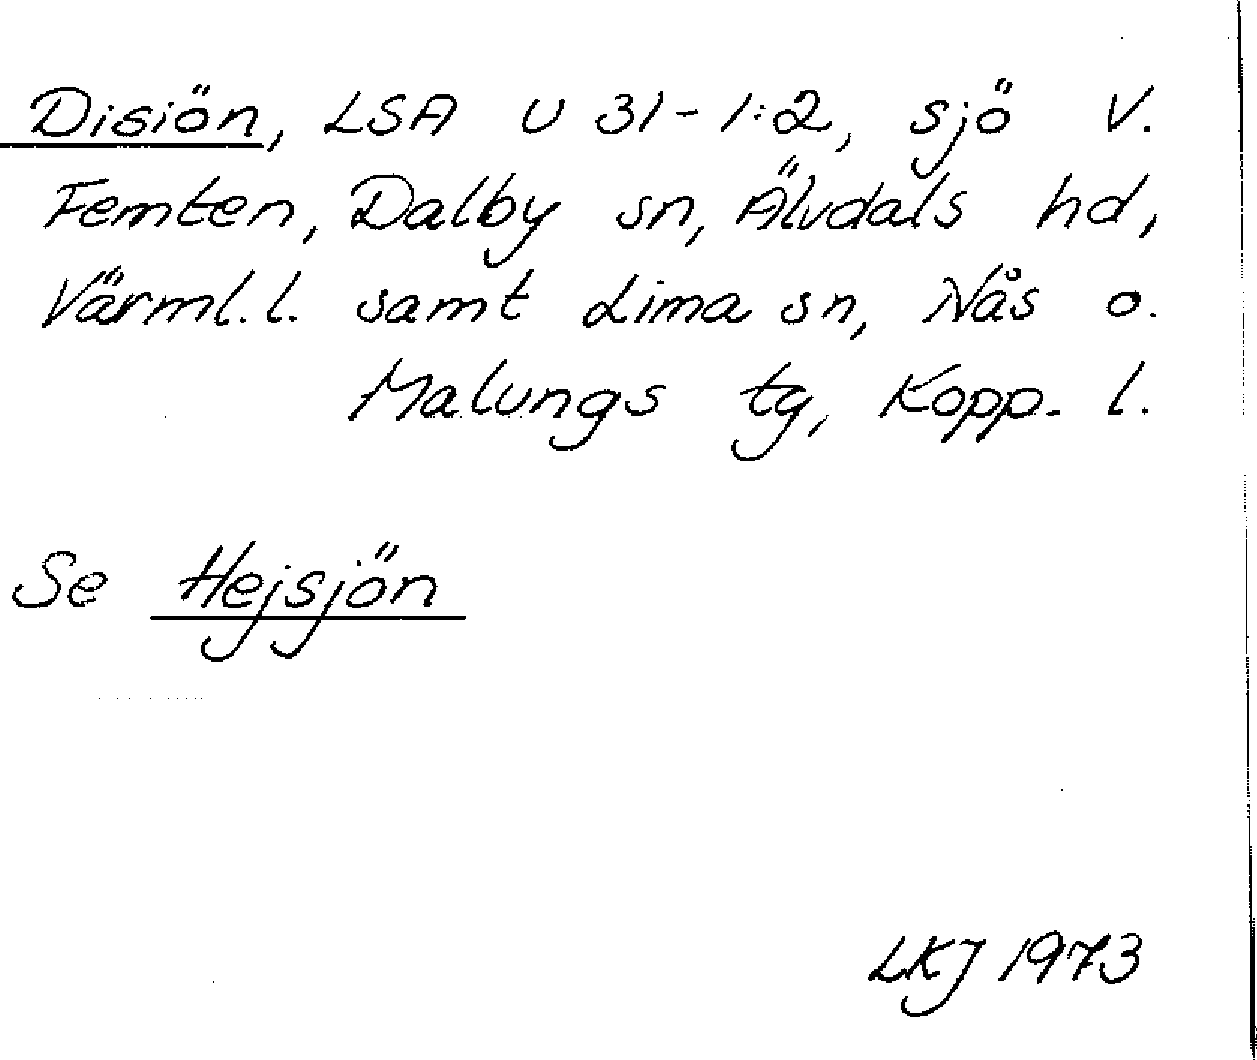 Disiön, LSA U 31-1:2, sjö V.
Femten, Dalby sn, Älvdals hd,
Värml.l. samt Lima sn, Nås o.
Malungs tg, Kopp. l.
Se Hejsjön
LKJ 1973